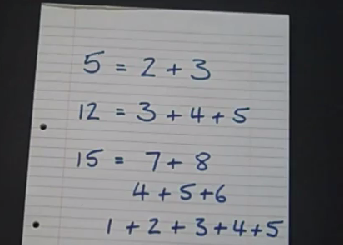 5 = 2 + 3
12 = 3 + 4 + 5
15 = 7 + 8
4 + 5 + 6
1 + 2 + 3 + 4 + 5